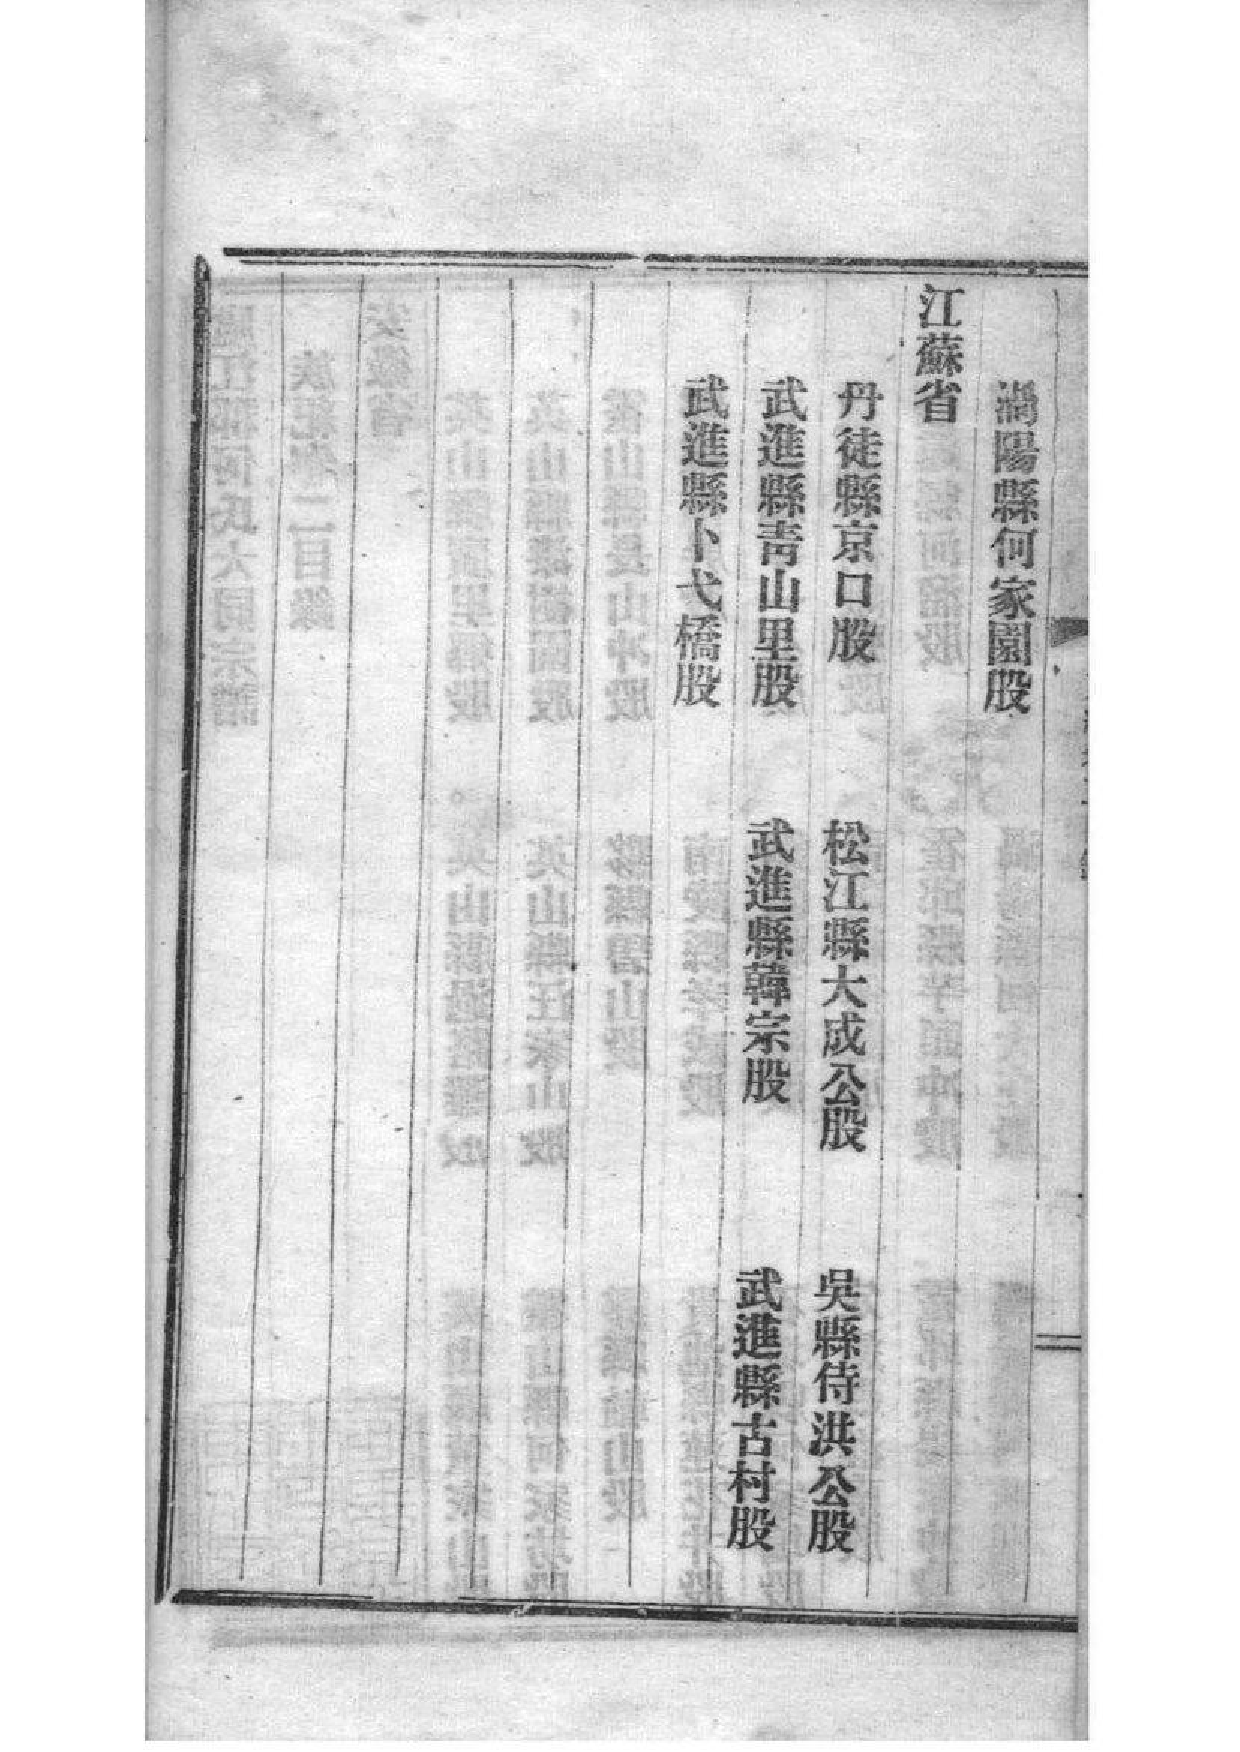 渦陽縣何家園股
江蘇省
丹徒縣京口股 松江縣大成公股 吳縣侍洪公股
武進縣靑山里股 武進縣韓宗股 武進縣古村股
武進縣卜弋橋股